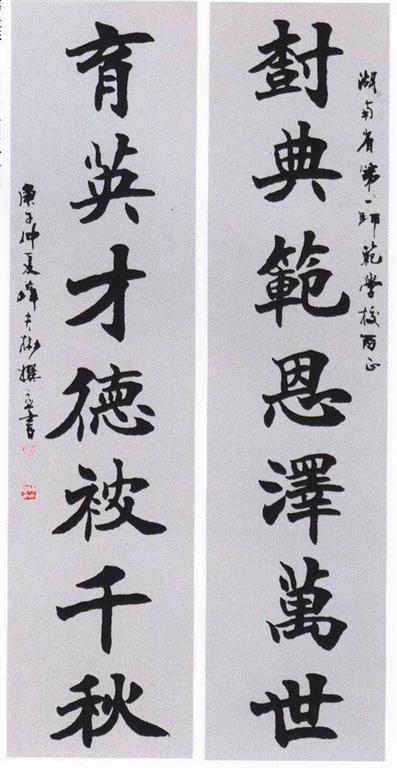 湖南省第一師範學校正
尌典範恩澤萬世
育英才德被千秋
庚子仲夏彬撰並書